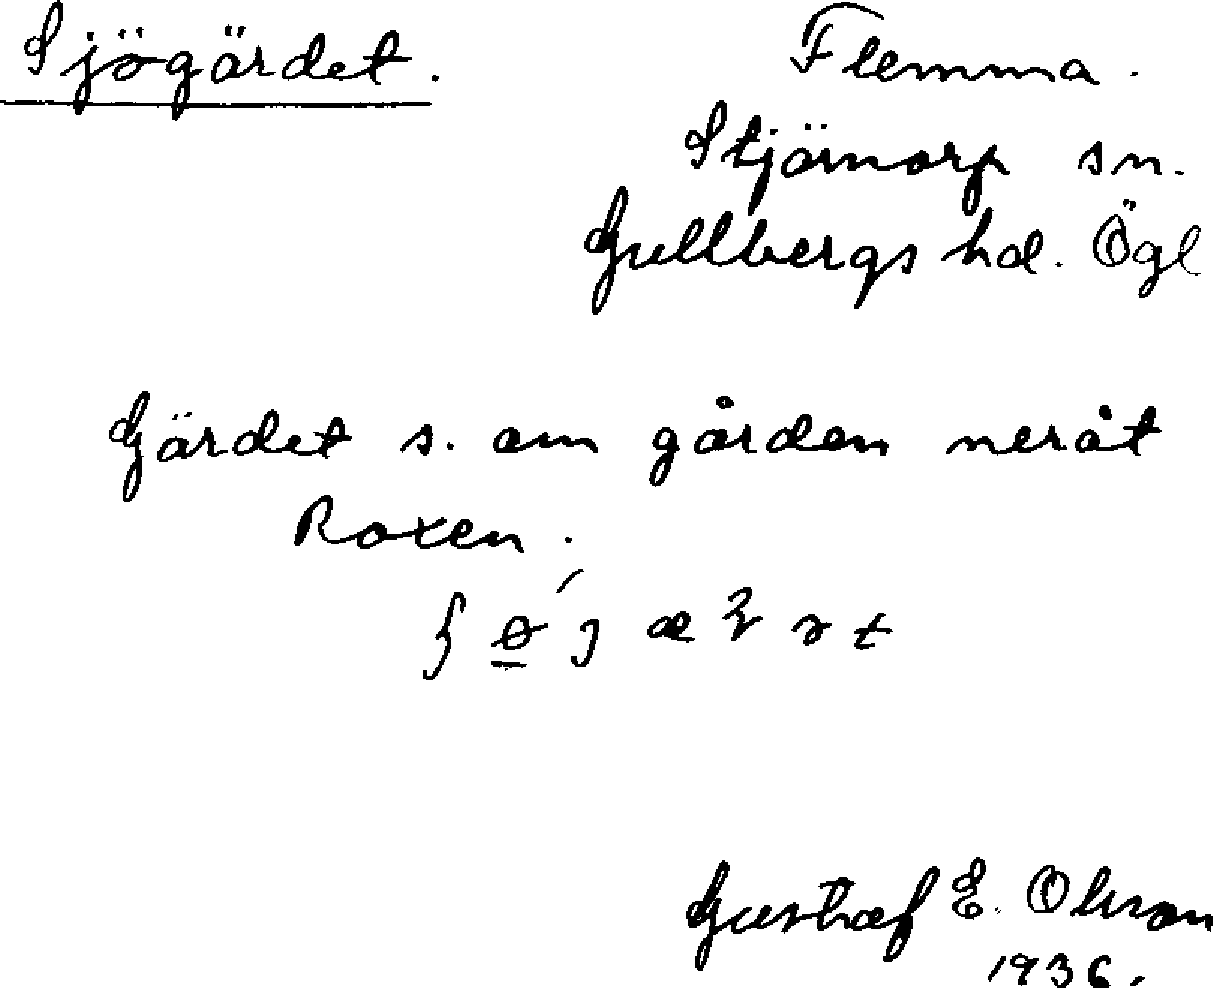 Sjögärdet.
Flemma.
Stjärnorp sn.
Gullbergs hd. Ögl
Gärdet s. om gården neråt
Roxen.
Gustaf E. Olsson
1936.